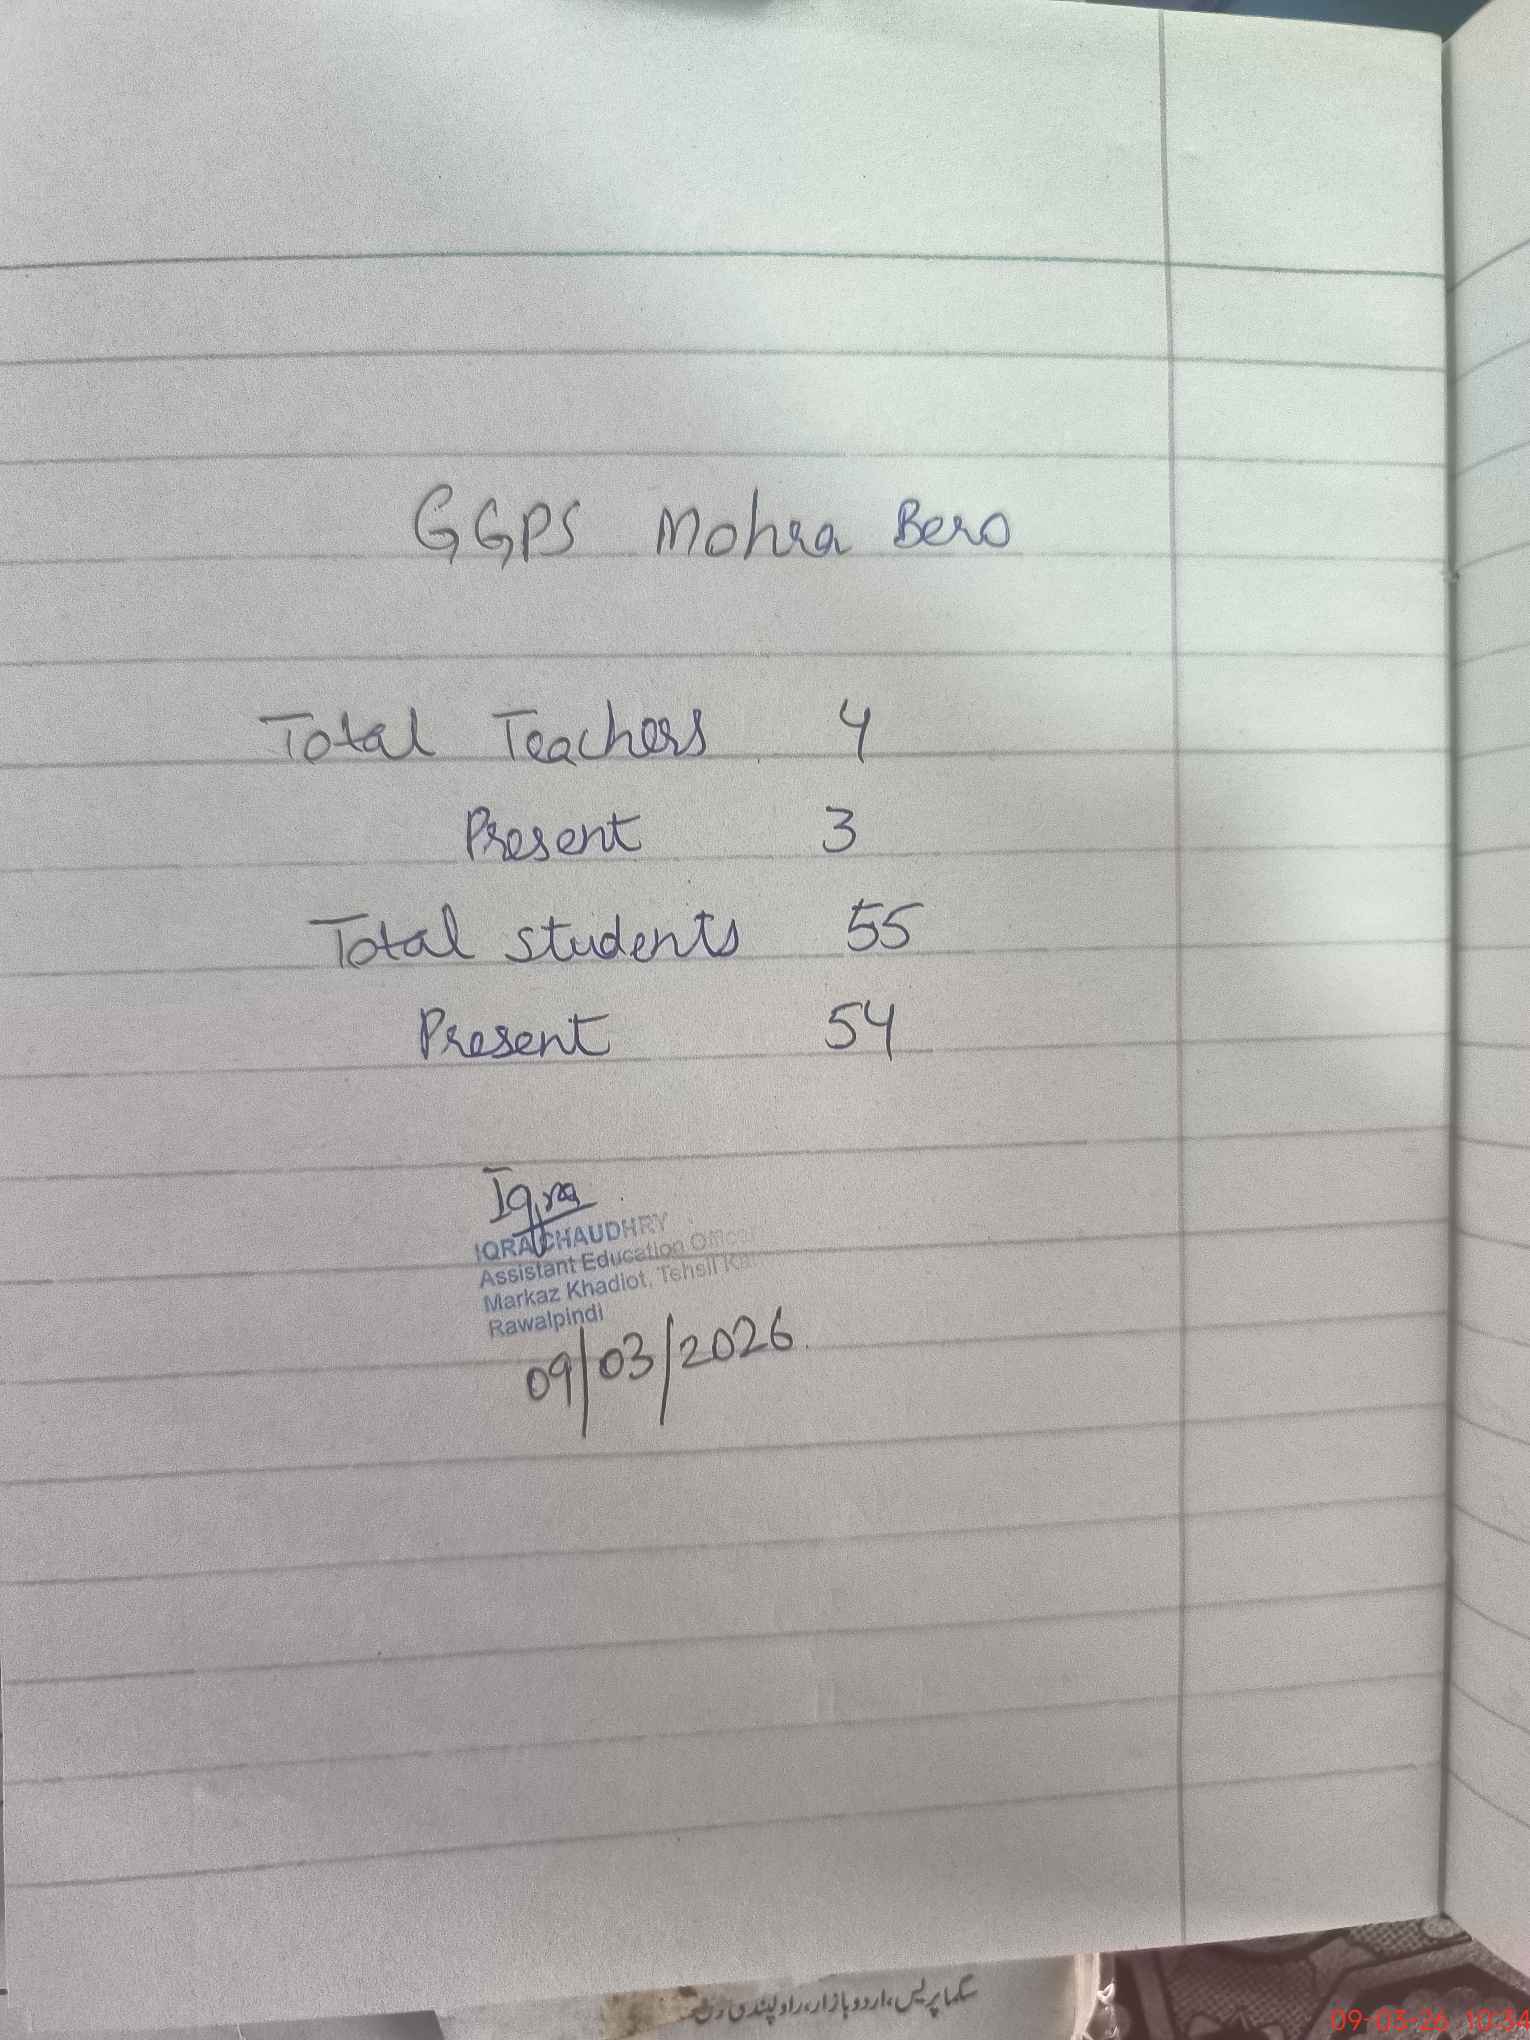 GGPS Mohra Bero
Total Teachers 4
Present 3
Total students 55
Present 54
Iqra
IQRA CHAUDHRY
Assistant Education Officer
Markaz Khadiot, Tehsil
Rawalpindi
09/03/2026
سگما پریس، اردو بازار، راولپنڈی
09-03-26 10:34